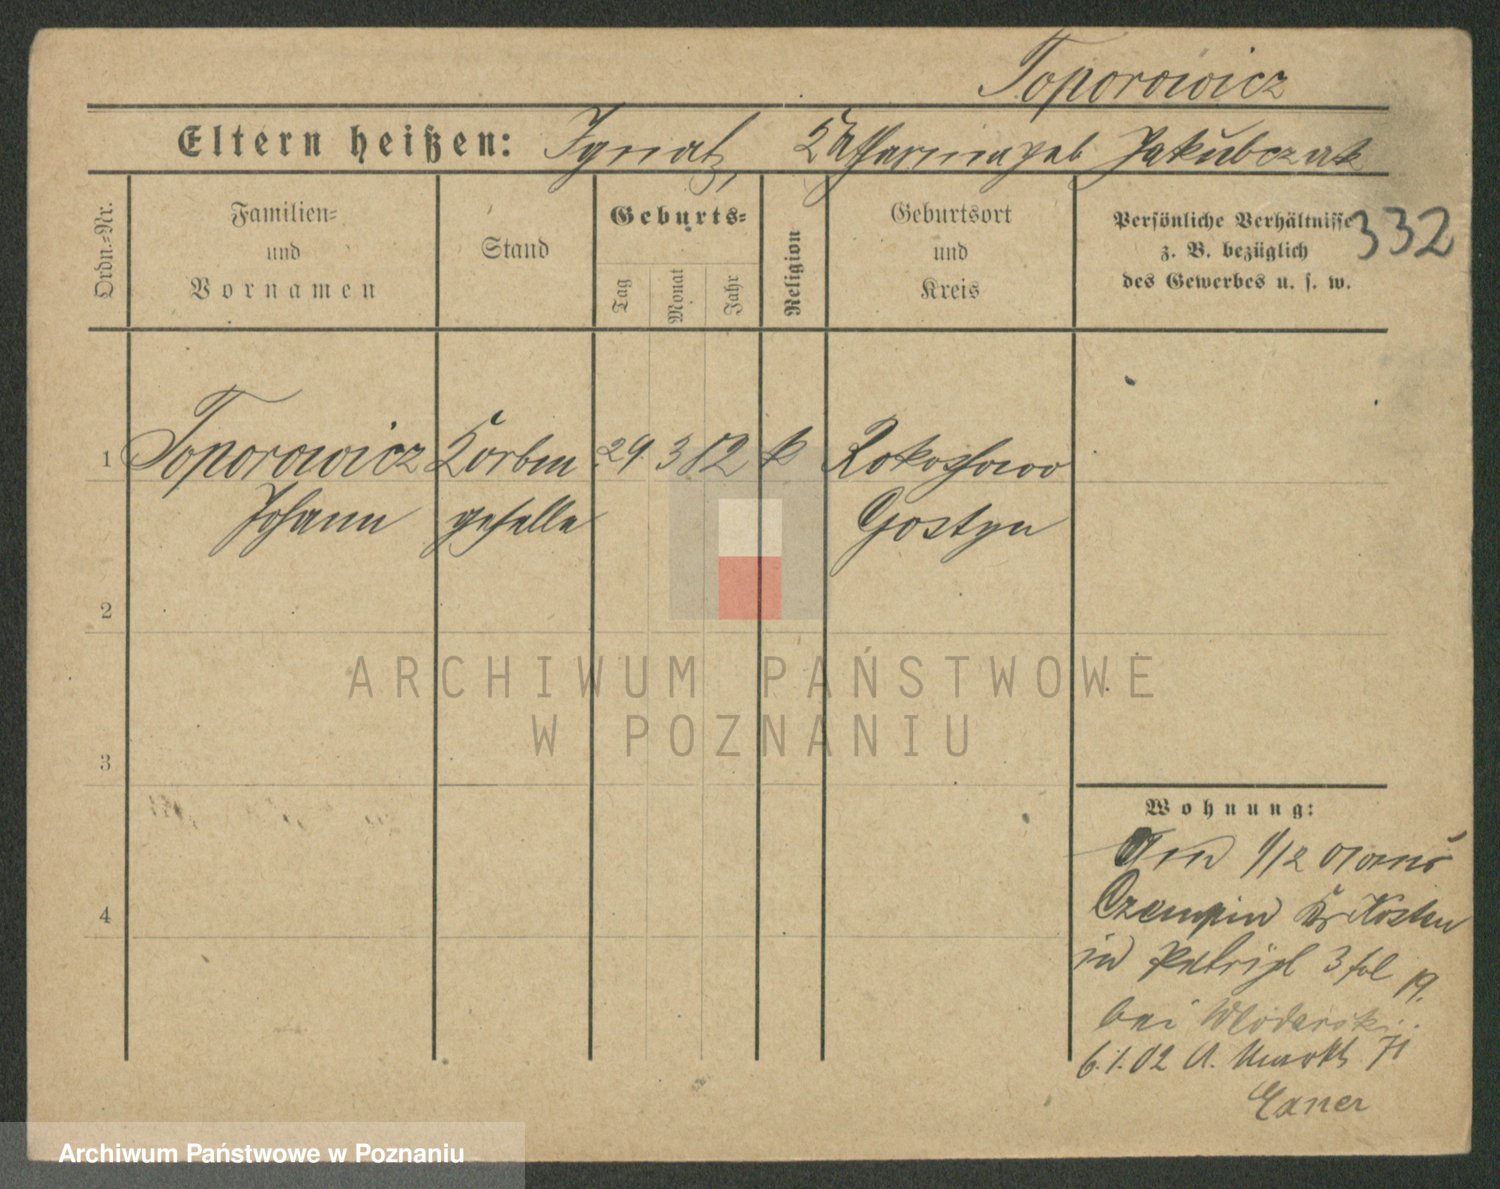 Toporowicz
Eltern heißen: Ignatz, Katharina geb Jakubczak
332
Ordn.=Nr.
Familien=
und
Vornamen
Stand
Geburts=
Tag
Monat
Jahr
Religion
Geburtsort
und
Kreis
Persönliche Verhältnisse
z. B. bezüglich
des Gewerbes u. s. w.
1 Toporowicz Korbm 29 3 82 k Rokossowo
Johann geselle Gostyn
2
3
4
Wohnung:
1/12
Czempin Kr Kosten
in 3
bei Wlodarski
6.1.02 A. Markt 71
Exner
ARCHIWUM PAŃSTWOWE
W POZNANIU
Archiwum Państwowe w Poznaniu